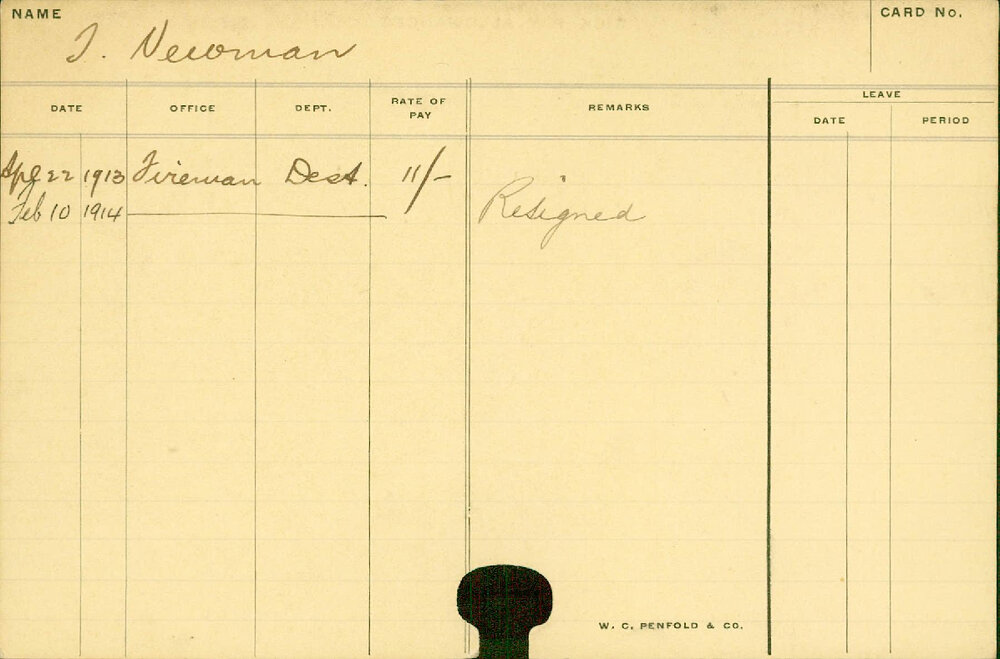 NAME
CARD No.
J. Newman
DATE OFFICE DEPT. RATE OF PAY REMARKS LEAVE
DATE PERIOD
Apl 22 1913 Fireman Dest. 11/-
Feb 10 1914 Resigned
W. C. PENFOLD & CO.